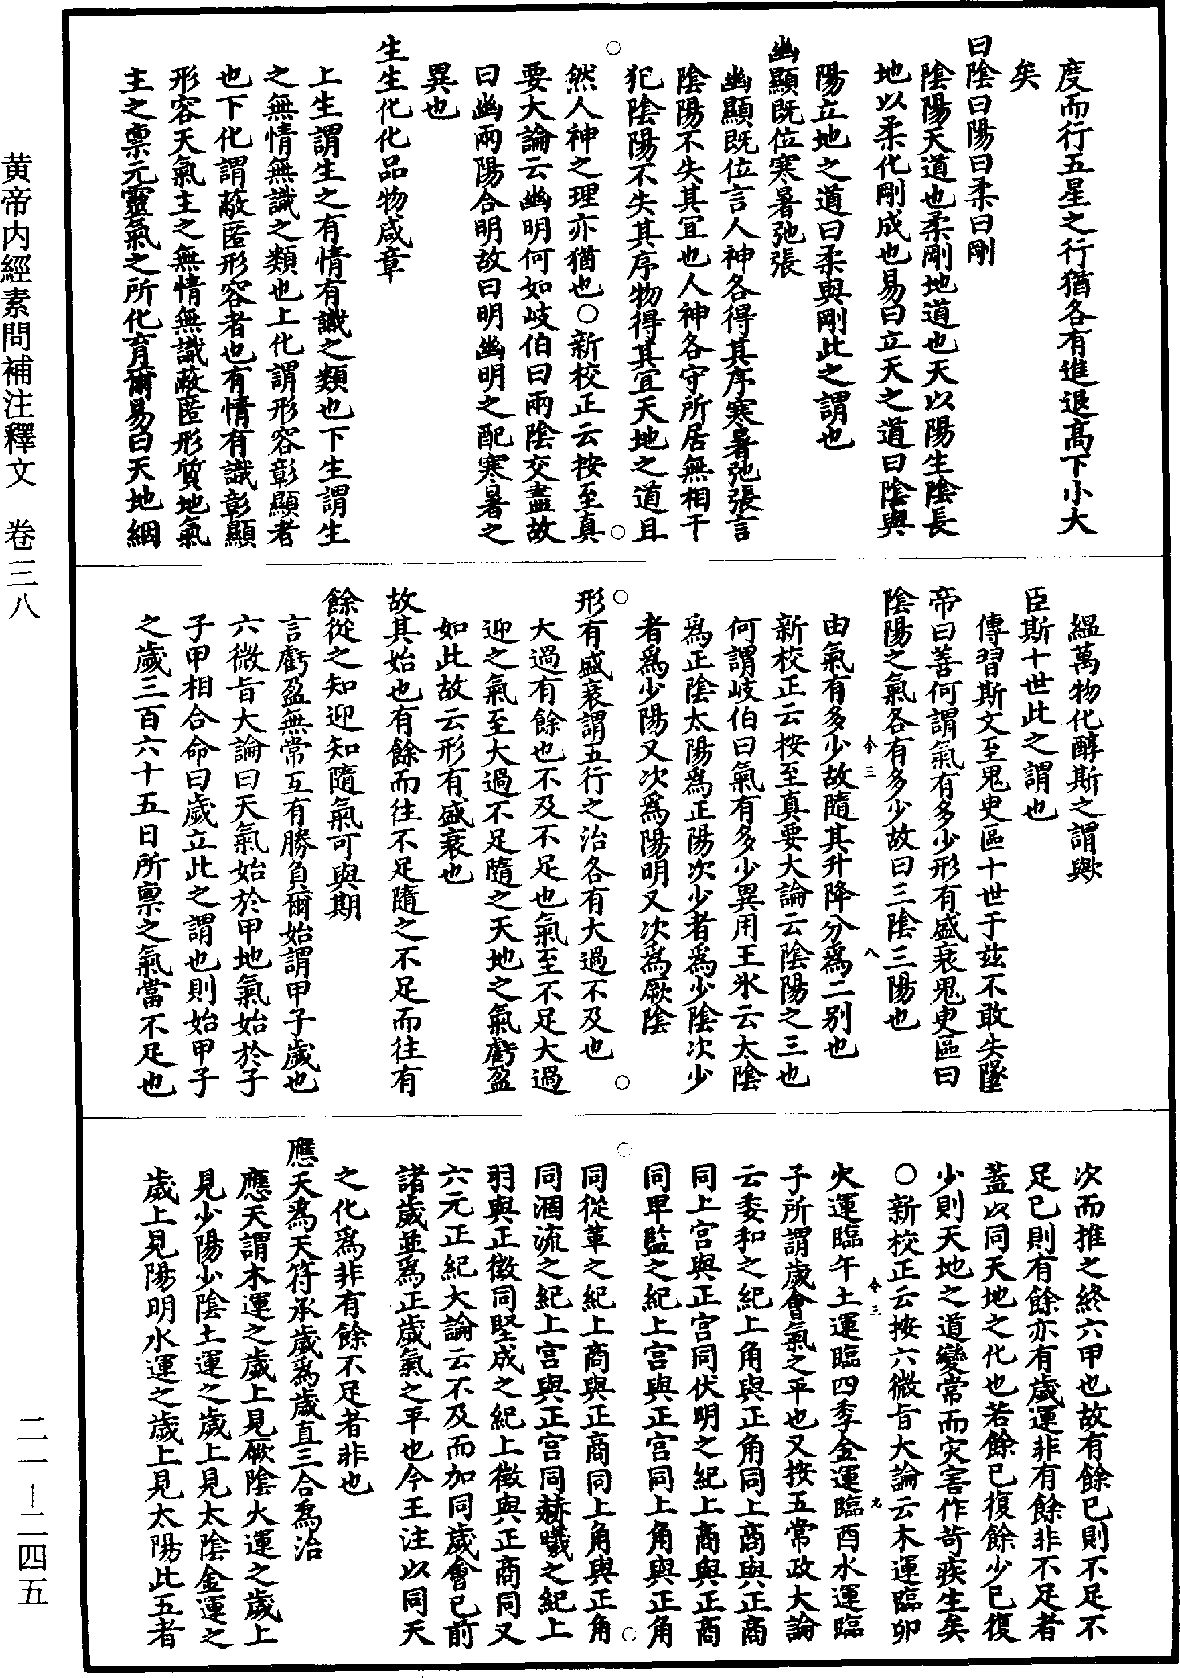 度而行五星之行猶各有進退高下小大
矣
曰陰曰陽曰柔曰剛
陰陽天道也柔剛地道也天以陽生陰長
地以柔化剛成也易曰立天之道曰陰與
陽立地之道曰柔與剛此之謂也
幽顯既位寒暑弛張
幽顯既位言人神各得其序寒暑弛張言
陰陽不失其宜也人神各守所居無相干
犯陰陽不失其序物得其宜天地之道且
然人神之理亦猶也○新校正云按至真
要大論云幽明何如岐伯曰兩陰交盡故
曰幽兩陽合明故曰明幽明之配寒暑之
異也
生生化化品物咸章
上生謂生之有情有識之類也下生謂生
之無情無識之類也上化謂形容彰顯者
也下化謂蔽匿形容者也有情有識彰顯
形容天氣主之無情無識蔽匿形質地氣
主之禀元靈氣之所化育爾易曰天地絪
緼萬物化醇斯之謂歟
臣斯十世此之謂也
傳習斯文至鬼臾區十世于茲不敢失墜
帝曰善何謂氣有多少形有盛衰鬼臾區曰
陰陽之氣各有多少故曰三陰三陽也
由氣有多少故隨其升降分為二別也
新校正云按至真要大論云陰陽之三也
何謂岐伯曰氣有多少異用王氷云太陰
為正陰太陽為正陽次少者為少陰次少
者為少陽又次為陽明又次為厥陰
形有盛衰謂五行之治各有大過不及也
大過有餘也不及不足也氣至不足大過
迎之氣至大過不足隨之天地之氣虧盈
如此故云形有盛衰也
故其始也有餘而往不足隨之不足而往有
餘從之知迎知隨氣可與期
言虧盈無常互有勝負爾始謂甲子歲也
六微旨大論曰天氣始於甲地氣始於子
子甲相合命曰歲立此之謂也則始甲子
之歲三百六十五日所禀之氣當不足也
次而推之終六甲也故有餘已則不足不
足已則有餘亦有歲運非有餘非不足者
蓋以同天地之化也若餘已復餘少已復
少則天地之道變常而灾害作苛疾生矣
○新校正云按六微旨大論云木運臨卯
火運臨午土運臨四季金運臨酉水運臨
子所謂歲會氣之平也又按五常政大論
云委和之紀上角與正角同上商與正商
同上宫與正宫同伏明之紀上商與正商
同卑監之紀上宫與正宫同上角與正角
同從革之紀上商與正商同上角與正角
同涸流之紀上宫與正宫同赫曦之紀上
羽與正徵同堅成之紀上徵與正商同又
六元正紀大論云不及而加同歲會已前
諸歲並為正歲氣之平也今王注以同天
之化為非有餘不足者非也
應天為天符承歲為歲直三合為治
應天謂木運之歲上見厥陰火運之歲上
見少陽少陰土運之歲上見太陰金運之
歲上見陽明水運之歲上見太陽此五者
黄帝内經素問補注釋文 卷三八
二一—二四五